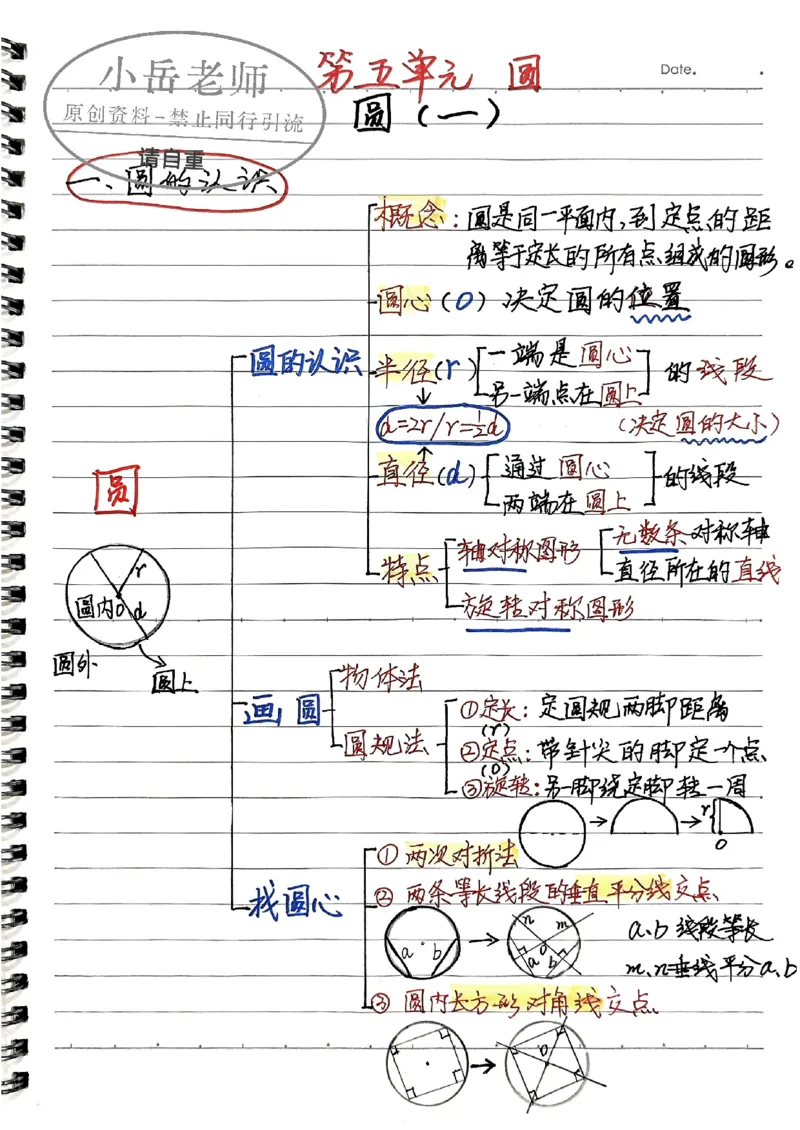 小岳老师
原创资料-禁止同行引流
请自重
第五单元 圆
Date.
圆(一)
一、圆的认识
概念:圆是同一平面内,到定点的距
离等于定长的所有点组成的图形。
圆心(O)决定圆的位置
圆的认识
半径(r)
一端是圆心
另一端点在圆上
的线段
(决定圆的大小)
d=2r/r=½d
直径(d)
通过圆心
两端在圆上
的线段
圆
特点
轴对称图形
无数条对称轴
直径所在的直线
旋转对称图形
r
圆内O d
圆外
圆上
画圆
物体法
圆规法
①定长:定圆规两脚距离
(r)
②定点:带针尖的脚定一个点
(O)
③旋转:另一脚绕定脚转一周
r
O
找圆心
①两次对折法
②两条等长线段的垂直平分线交点
a b
n m
O
a b
a、b线段等长
m、n垂线平分a、b
③圆内长方形对角线交点
O